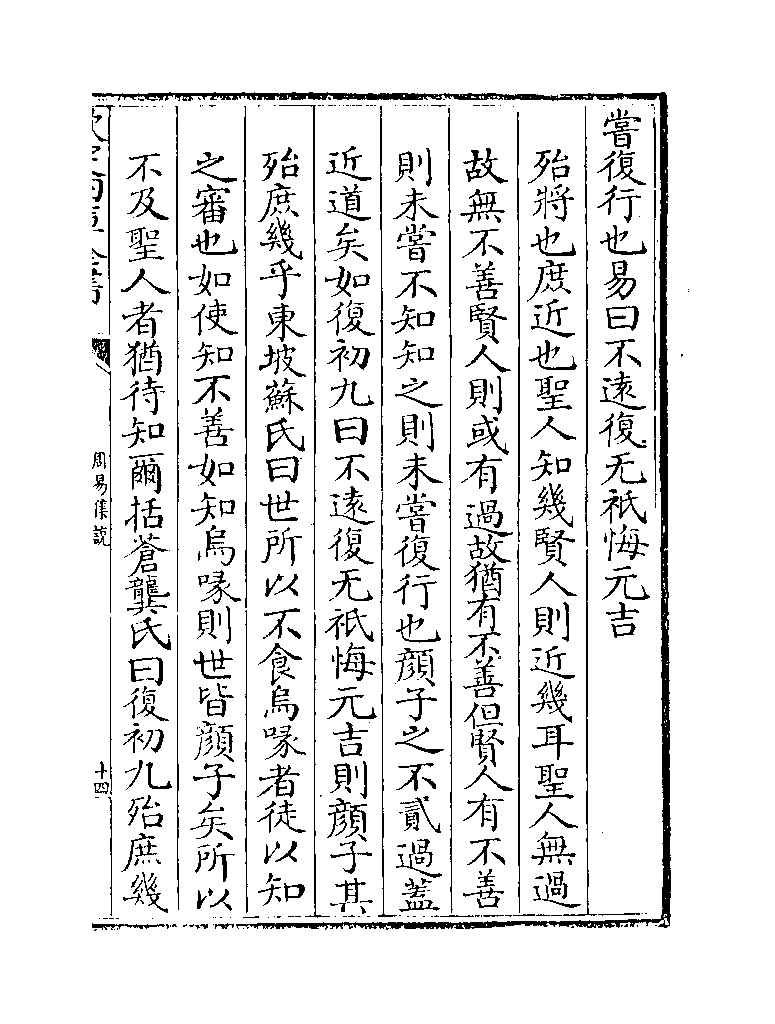 嘗復行也易曰不遠復无祇悔元吉
殆將也庶近也聖人知幾賢人則近幾耳聖人無過
故無不善賢人則或有過故猶有不善但賢人有不善
則未嘗不知知之則未嘗復行也顔子之不貳過蓋
近道矣如復初九曰不遠復无祇悔元吉則顔子其
殆庶幾乎東坡蘇氏曰世所以不食烏喙者徒以知
之審也如使知不善如知烏喙則世皆顔子矣所以
不及聖人者猶待知爾括蒼龔氏曰復初九殆庶幾
欽定四庫全書
周易集説
十四